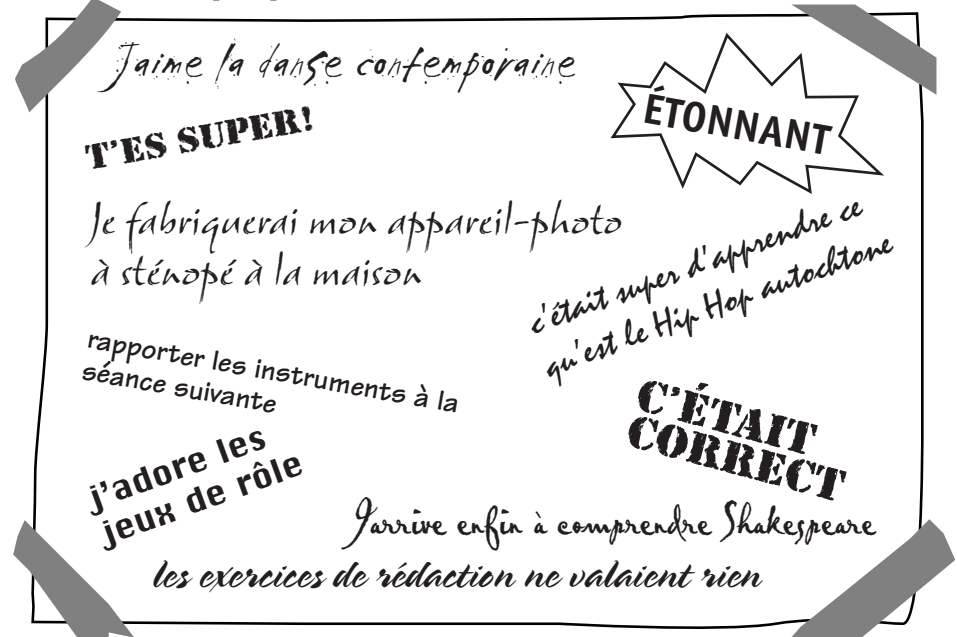 J'aime la danse contemporaine
ÉTONNANT
T'ES SUPER!
Je fabriquerai mon appareil-photo
à sténopé à la maison
c'était super d'apprendre ce
qu'est le Hip Hop autochtone
rapporter les instruments à la
séance suivante
C'ÉTAIT
CORRECT
j'adore les
jeux de rôle
J'arrive enfin à comprendre Shakespeare
les exercices de rédaction ne valaient rien